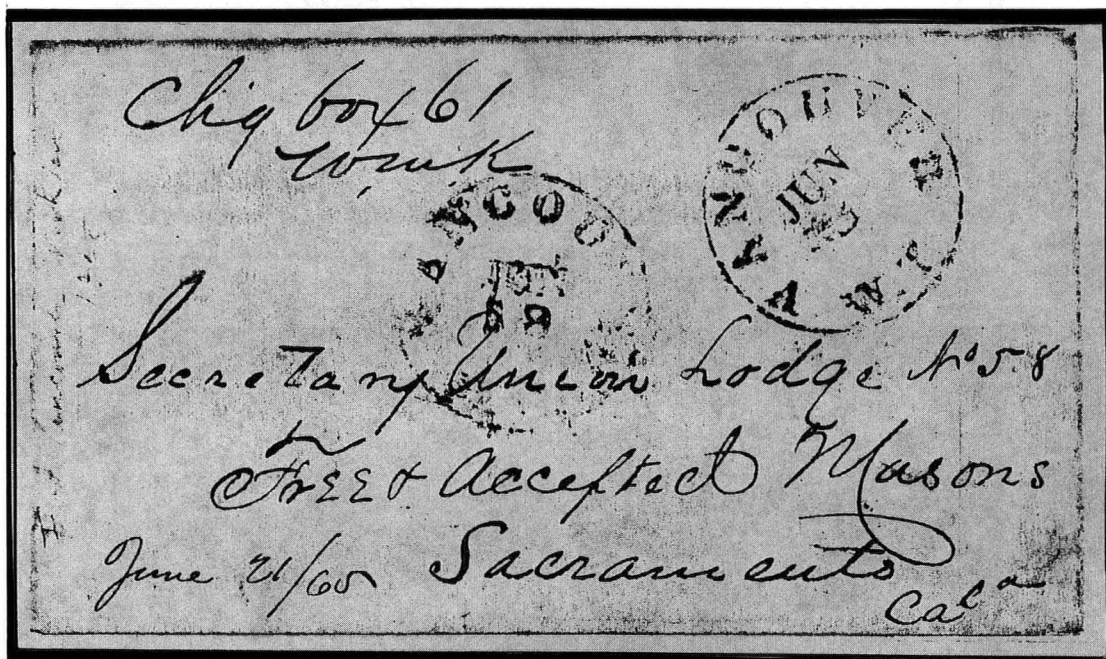 Chg box 61
VANCOUVER
W.T.
JUN
ANCOU
Secretary Union Lodge No 58
Free & Accepted Masons
June 21/60 Sacramento
Cala